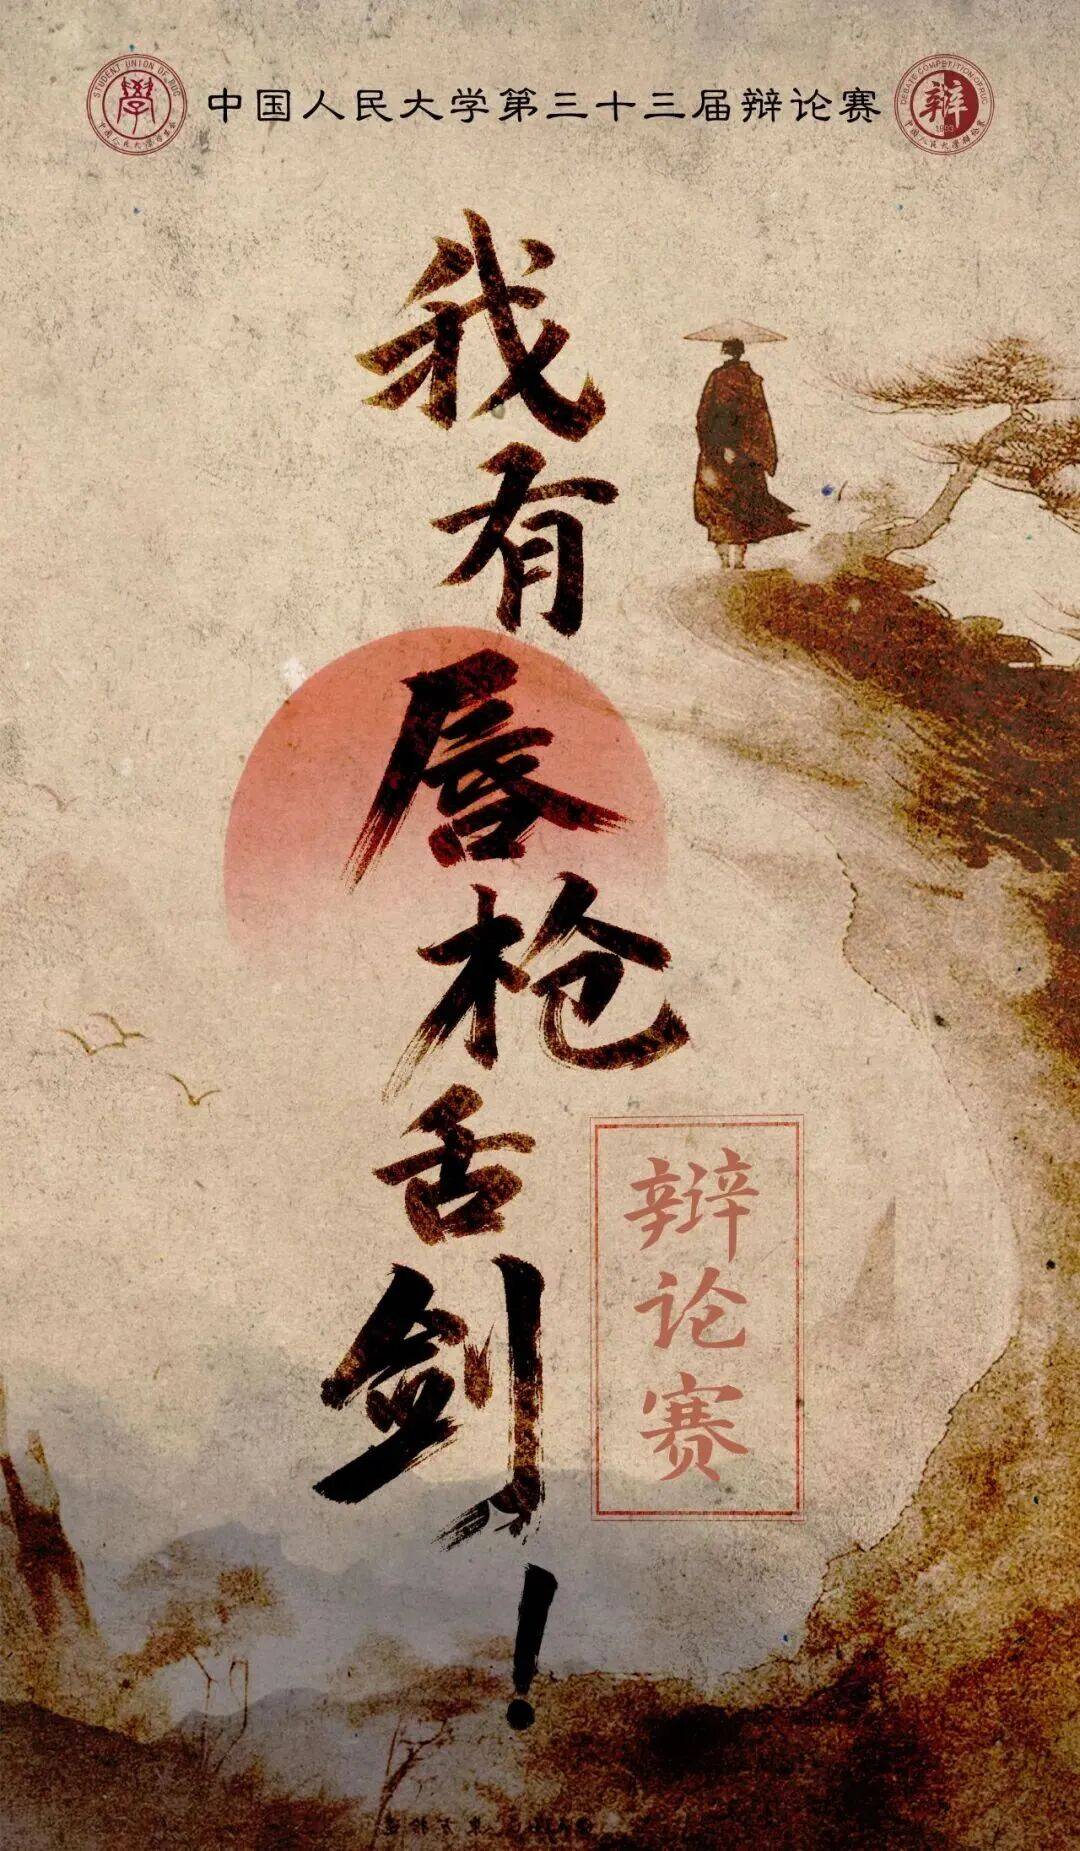 STUDENT UNION OF RUC
學
中国人民大学第三十三届辩论赛
DEBATE COMPETITION OF RUC
辩
中国人民大学辩论赛
我有唇枪舌剑!
辩论赛